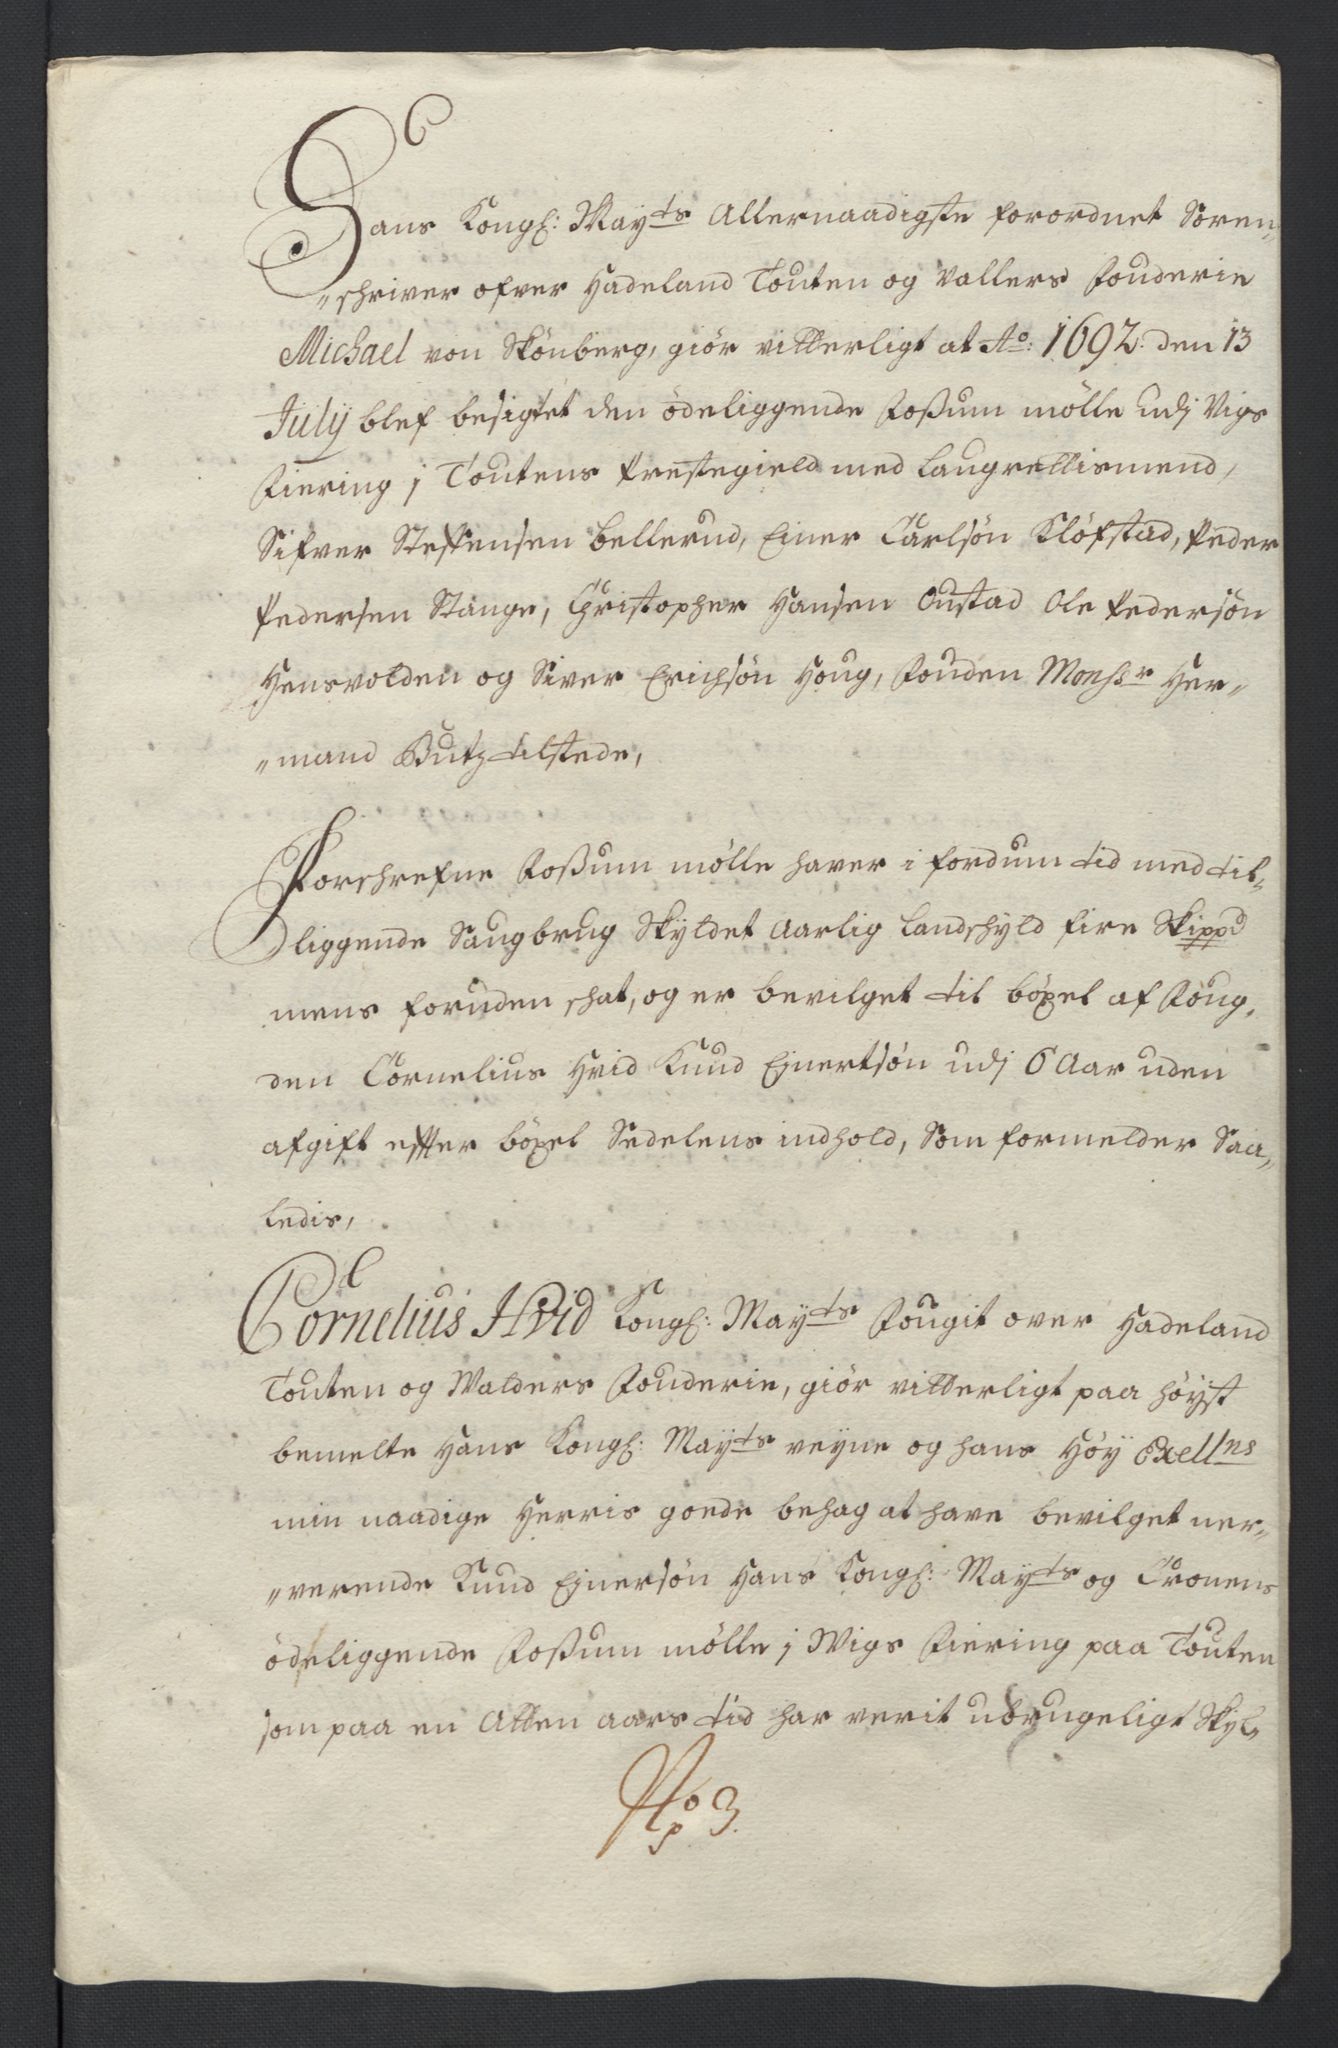 Hans Kongl: Mayts Allernaadigste forordnet Soren„
„schriver ofver Hadeland Touten og Vallers Fouderie
Michael von Skönberg, giör vitterligt at Ao: 1692: den 13
Julÿ blef besigtet den ödeliggende Foßum mölle udj Vigs
Fiering j Toutens Prestegield med Laugrettismend,
Sifver Steffensen Bellerud, Einer Carlsön Klöfstad, Peder
Pedersen Stange, Christopher Hansen Oustad Ole Pedersön
Hensvolden og Siver Erichsön Houg, Fouden Monsr Her„
„mand Butz tilstede,
Forschrefne Foßum mölle haver i fordum tid med til„
liggende Saugbrug Skyldet Aarlig Landschyld fire Skippd
mens foruden schat, og er bevilget til böxel af Foug,
den Cornelius Hvid Knud Ejnertsön udj 6 Aar uden
afgift effter böxel Sedelens indhold, Som formelder Saa„
ledis,
Cornelius Hvid Kongl: Maÿts Fougit over Hadeland
Touten og Walders Fouderie, giör vitterligt paa höyst
bemelte Hans Kongl: Maÿts veÿne og hans Höÿ Exellns
min naadige Herris goede behag at have bevilget ner„
„verende Knud Ejnersön Hans Kongl: Maÿts og Cronens
ödeliggende Foßum mölle j Wigs Fiering paa Touten
som paa en Atten aars tid har verit ubrugeligt Skyl„
No 3.